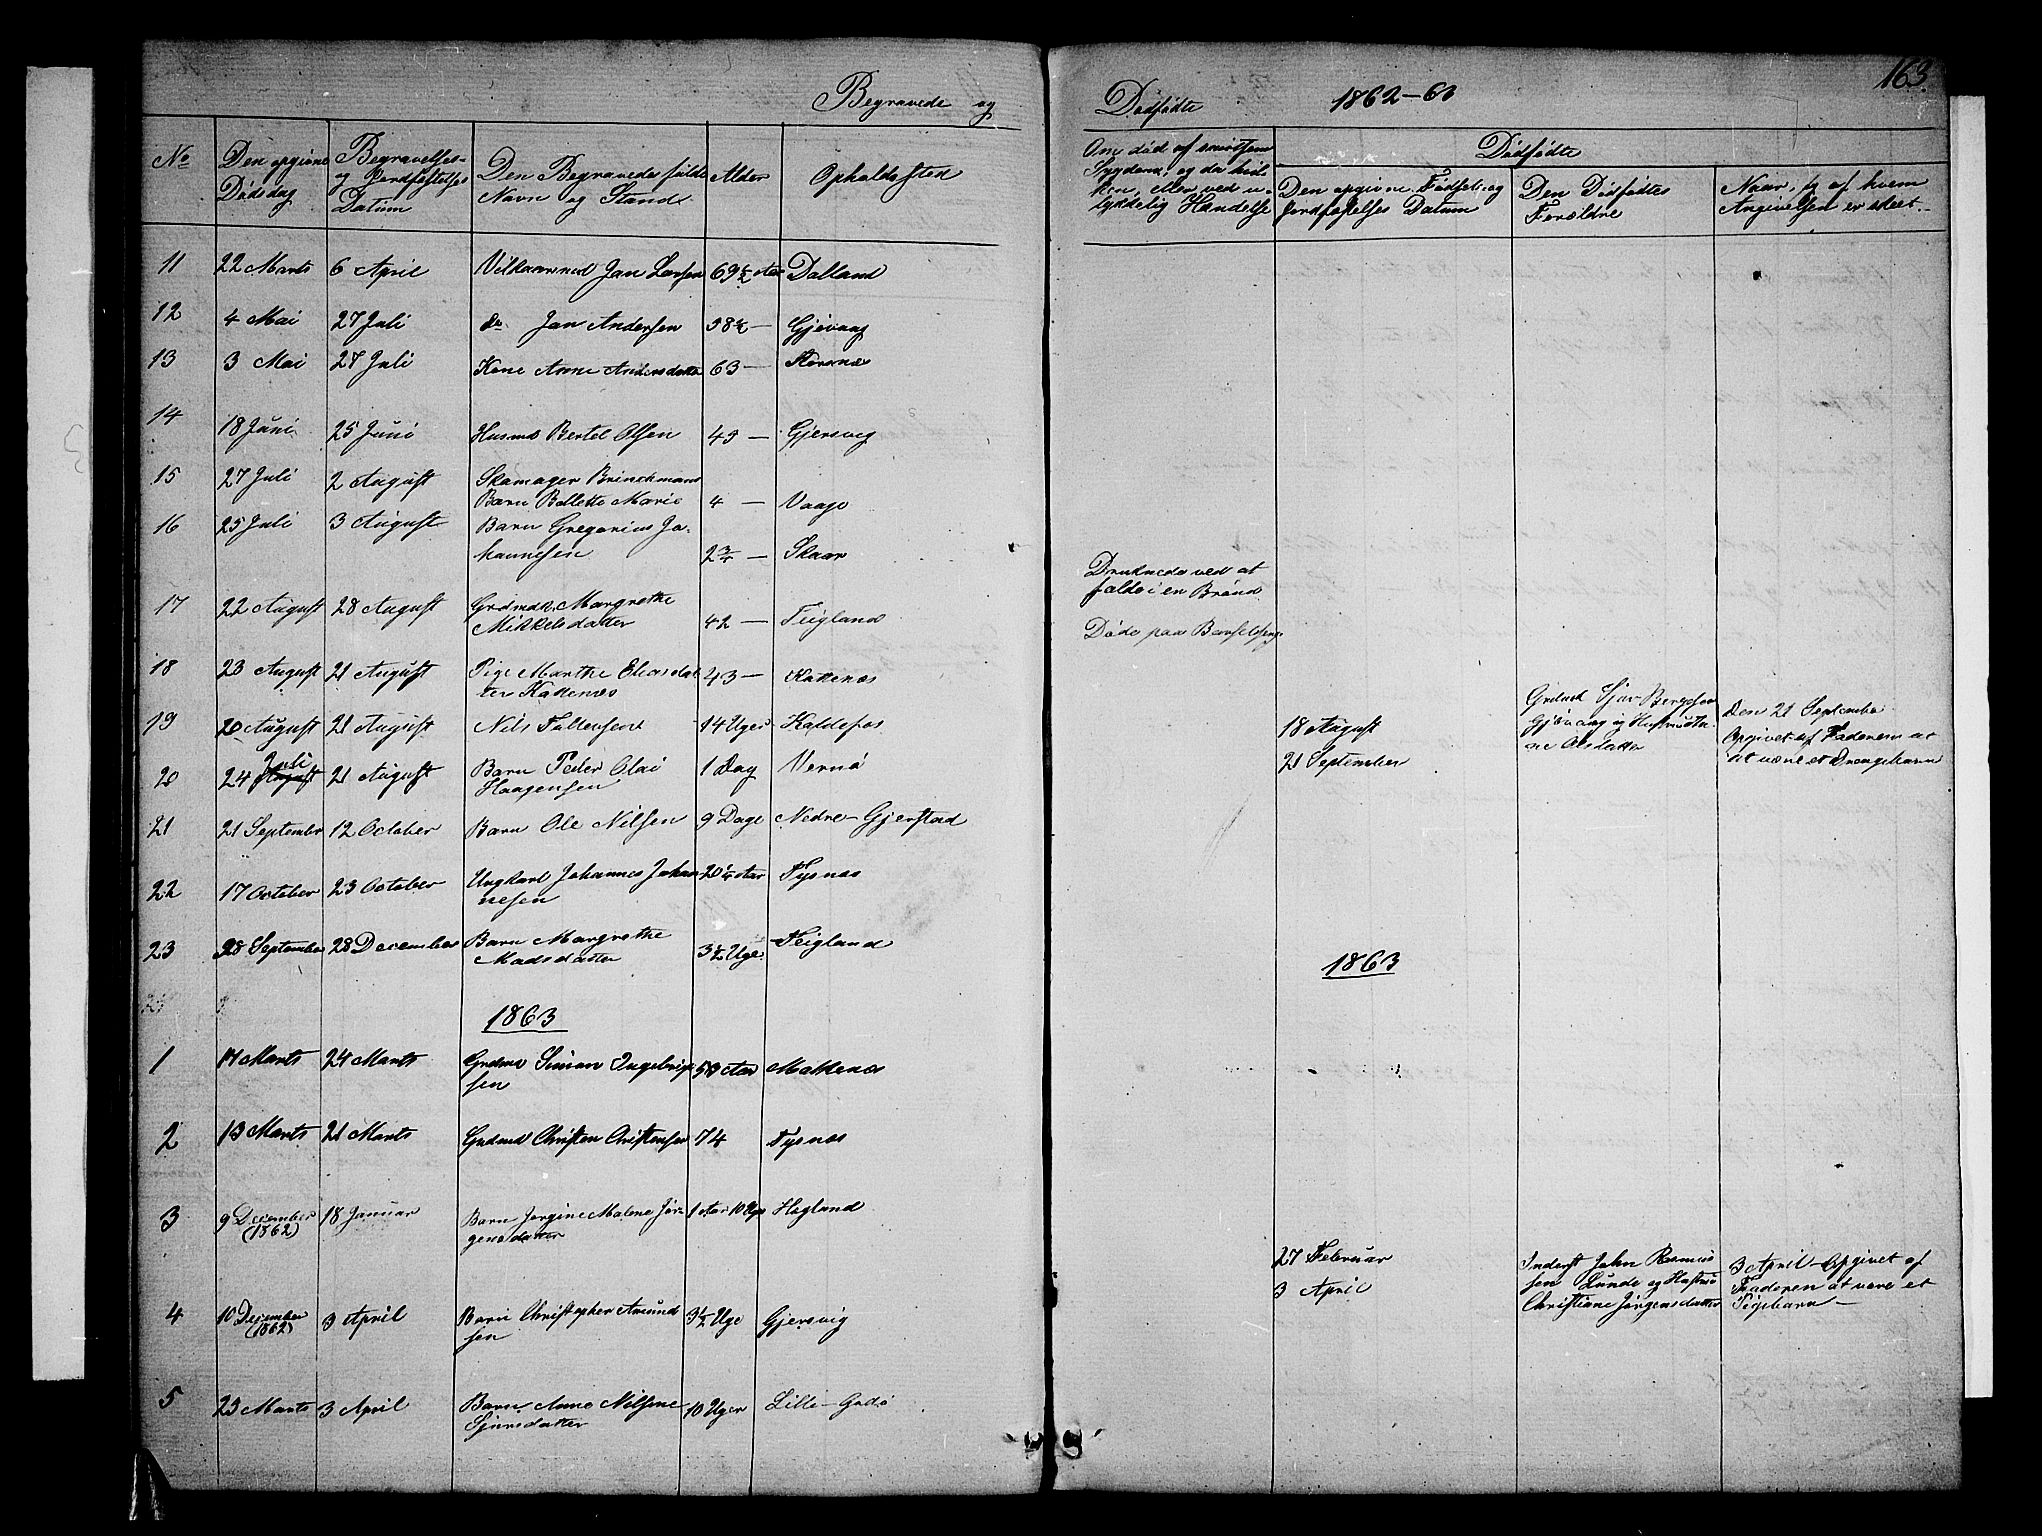 Begravede og
Dødfødte 1862-63
163.
No
Den opgivne Dødsdag
Begravelses- og Jordfæstelses Datum
Den Begravedes fulde Navn og Stand
Alder
Opholdssted
Om død af smitsom Sygdom, og da hvilken, eller ved ulykkelig Hændelse
Dødfødte
Den opgivne Fødsels- og Jordfæstelses Datum
Den Dødfødtes Forældre
Naar, og af hvem Angivelsen er skeet.
11 22 Marts 6 April Vilkaarsmd Jan Larsen 69½ Aar Dalland
12 4 Mai 27 Juli do Jan Andersen 58½ — Gjøvaag
13 3 Mai 27 Juli Kone Anne Andersdatter 63 — Korsnæs
14 18 Juni 25 Juni Husmd Bertel Olsen 45 — Gjersvig
15 27 Juli 2 August Skomager Brinchmans
Barn Bollette Marie 4 — Vaage
16 25 Juli 3 August Barn Gregorius Jo-
hannesen 2¾ — Skaar
Druknede ved at
falde i en Brønd
17 22 August 28 August Grdmdk. Margrethe
Mikkelsdatter 42 — Teigland
Døde paa Barselseng
18 23 August 21 August Pige Marthe Eliasdat
ter Kakenæs 43 — Kakenæs
19 20 August 21 August Nils Tollensen 14 Uger Haldefos
18 August
21 September
Grdmd Sjur Bergesen
Gjøvaag og Hustru
Olsdatter
Den 21 September
Opgivet af Faderen at
at være et Drengebarn
Juli
20 24 August 21 August Barn Peder Olai
Haagensen 1 Dag Vernø
21 21 September 12 October Barn Ole Nilsen 9 Dage Nedre-Gjerstad
22 17 October 23 October Ungkarl Johannes Johan
nesen 20¼ Aar Tysnæs
23 28 September 28 December Barn Margrethe
Madsdatter 3½ Uge Teigland
1863
1863
1 14 Marts 24 Marts Grdmd Simon Ingebrigt
sen 50 Aar Malkenæs
2 13 Marts 21 Marts Grdmd Christen Christensen 74 Tysnæs
3 9 December
(1862) 18 Januar Barn Jørgine Malene Jør-
gensdatter 1 Aar 10 Uge Hegland
27 Februar
3 April
Inderst John Rasmus
sen Lunde og Hustru
Christiane Jørgensdatter
3 April Opgivet af
Faderen at være et
Pigebarn —
4 10 December
(1862) 3 April Barn Christopher Amund
sen 3½ Uge Gjersvig
5 23 Marts 3 April Barn Anne Nilsine
Sjursdatter 10 Uger Lille-Godø